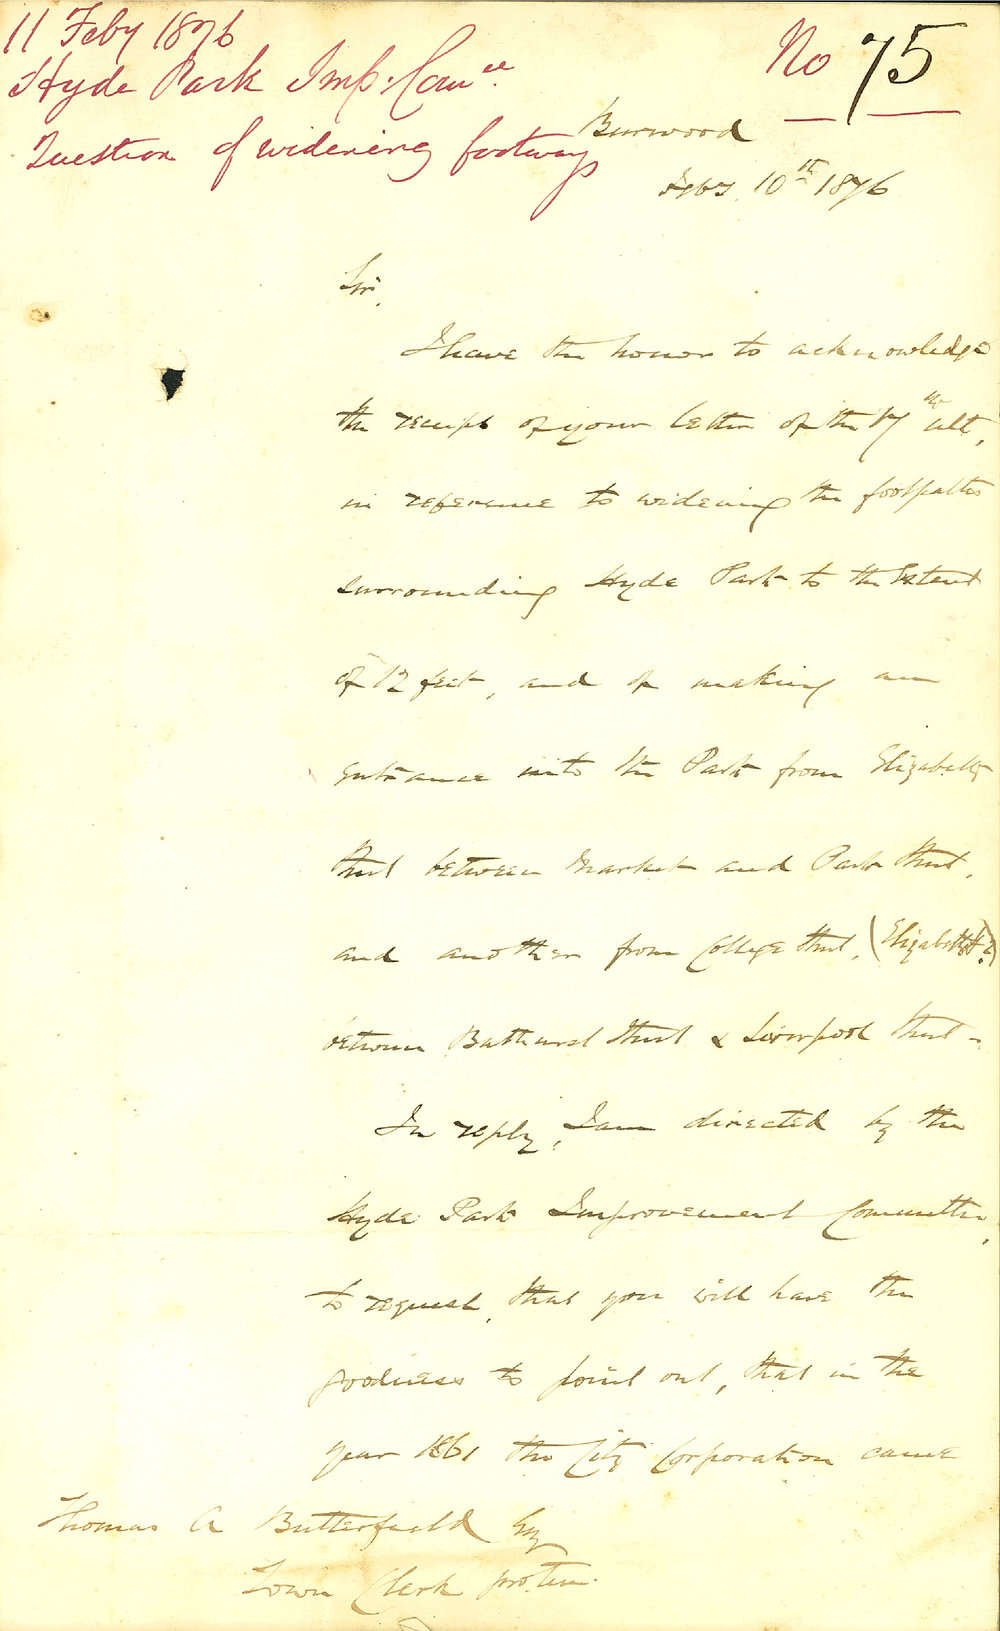 11 Feby 1876
Hyde Park Imp. Com.ee
No 75
Question of widening footways
Burwood
Feby. 10th 1876
Sir,
I have the honor to acknowledge
the receipt of your letter of the 17 ult,
in reference to widening the footpaths
surrounding Hyde Park to the Extent
of 12 feet, and of making an
entrance into the Park from Elizabeth
Street between Market and Park Street,
and another from College Street, (Elizabeth St?)
between Bathurst Street & Liverpool Street -
In reply, I am directed by the
Hyde Park Improvement Committee,
to request, that you will have the
goodness to point out, that in the
year 1861 the City Corporation came
Thomas A Butterfield Esq
Town Clerk pro. tem.